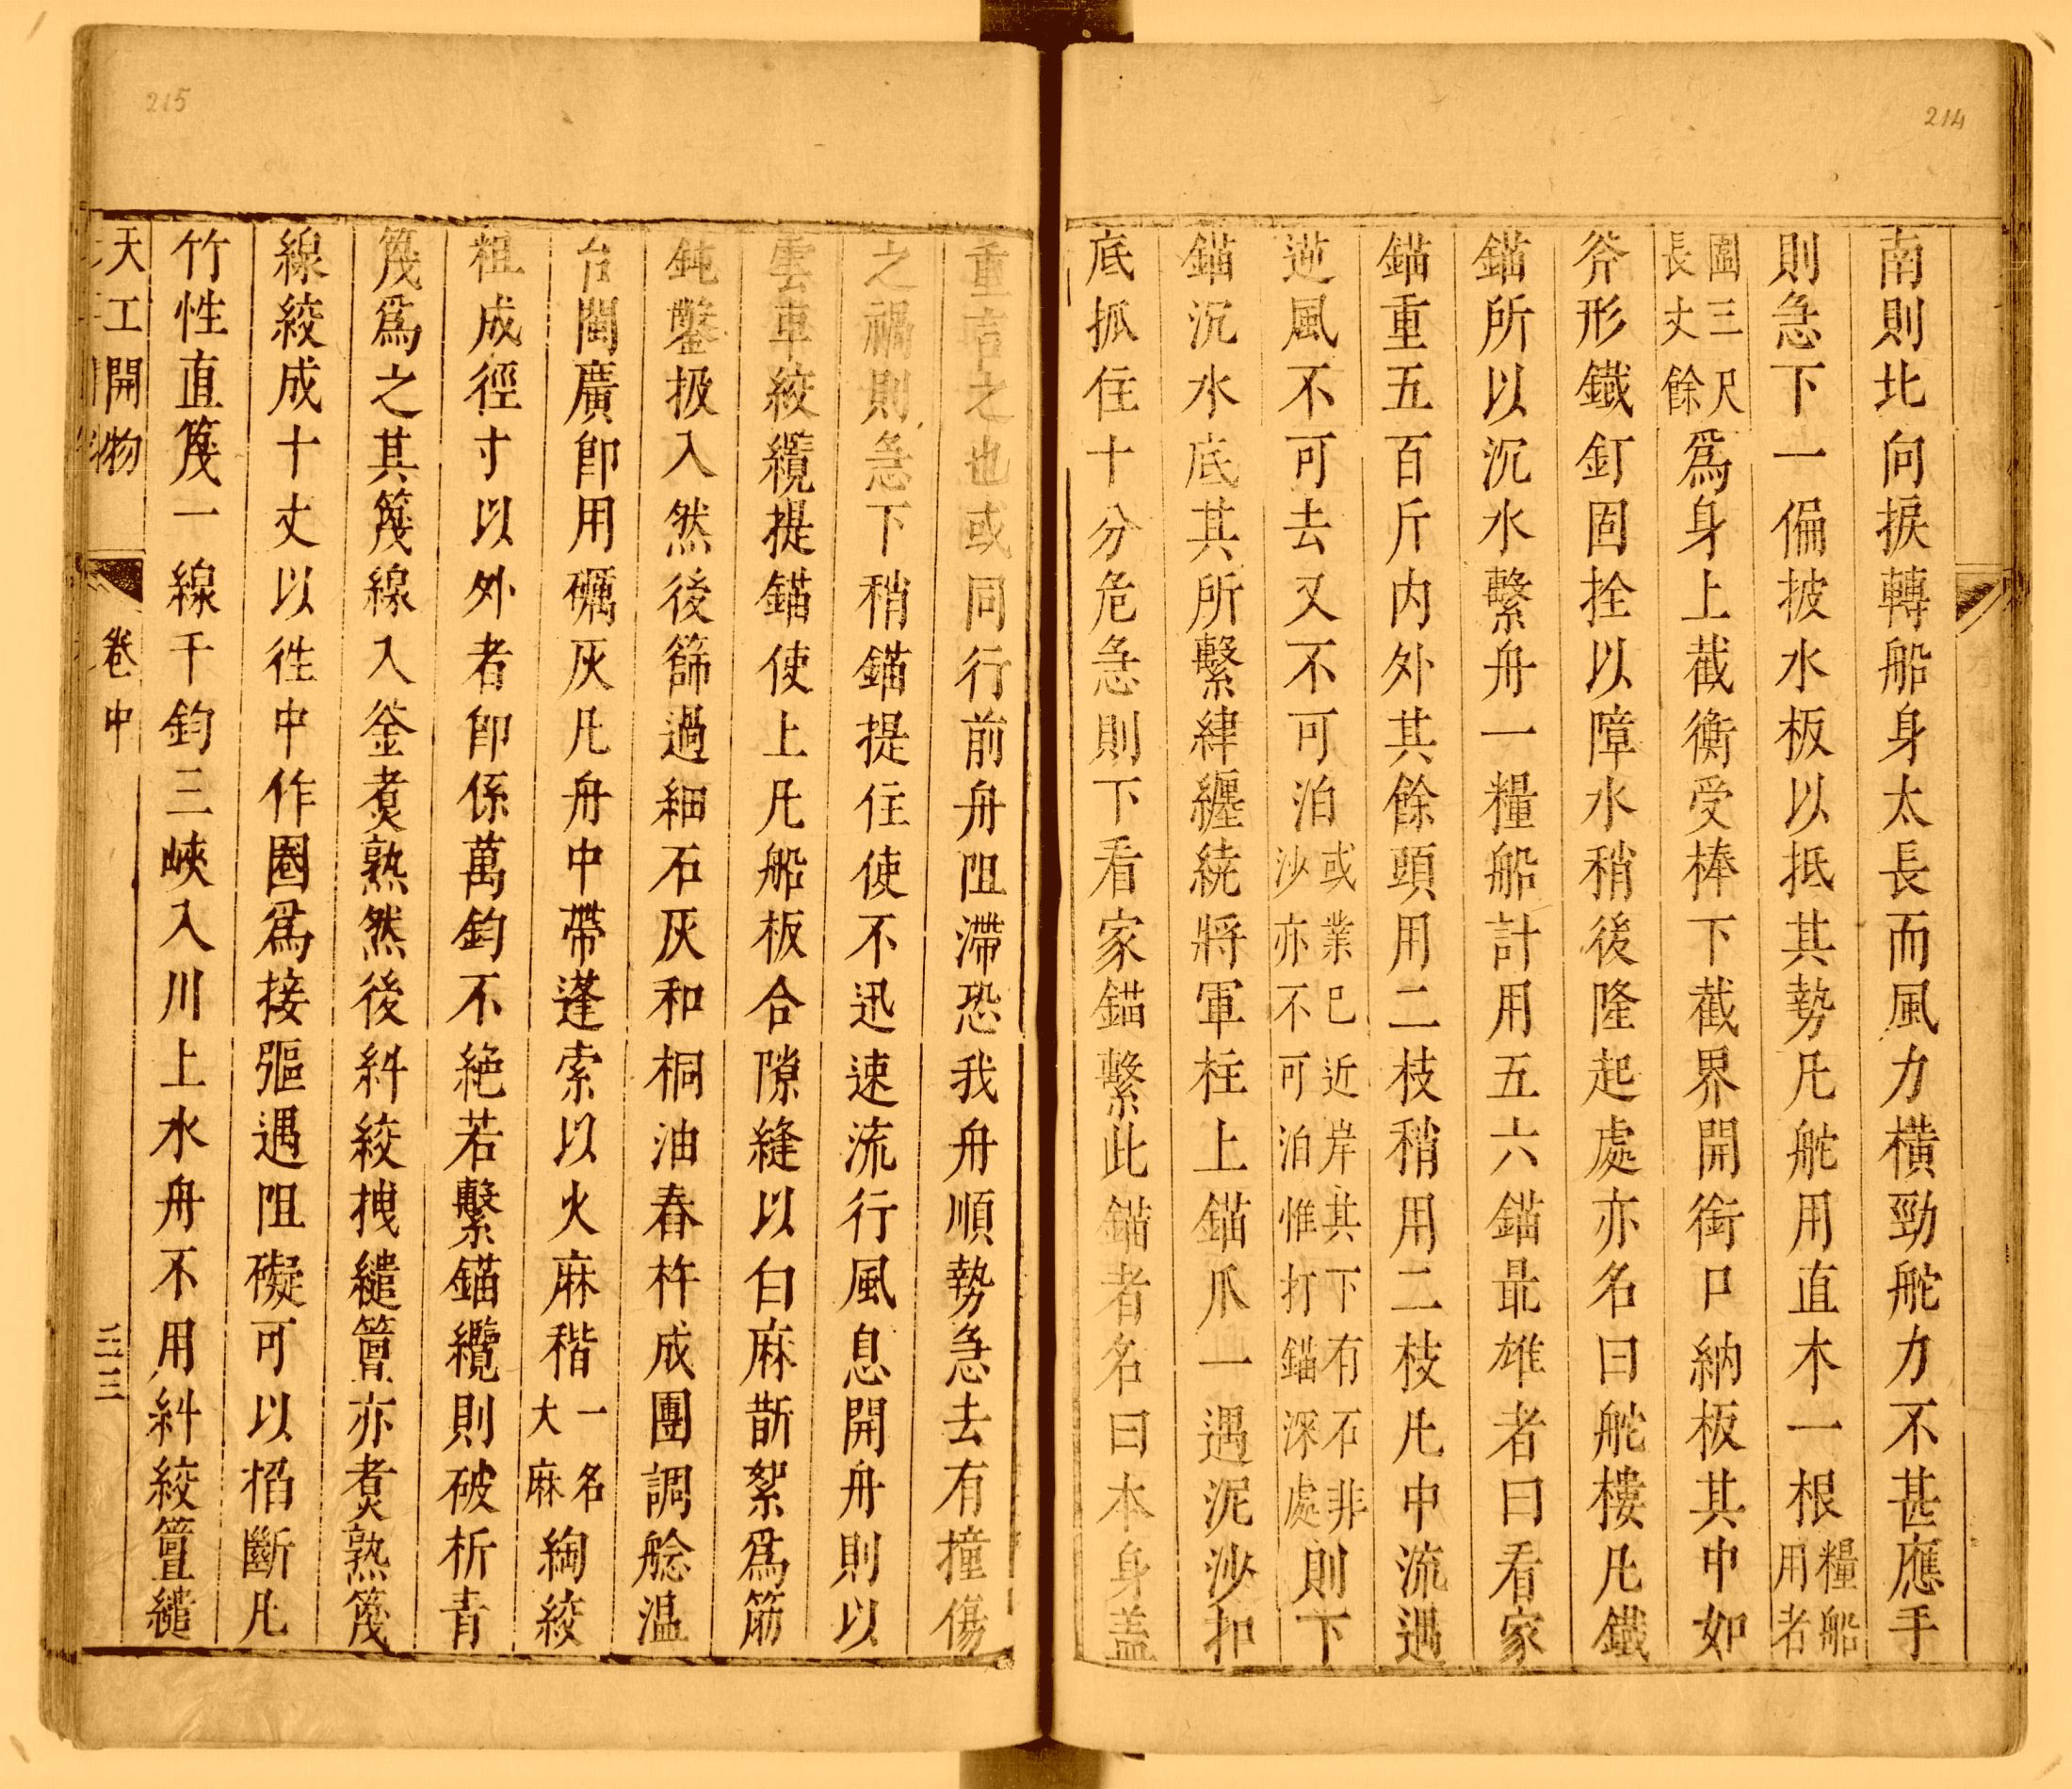 214
南則北向捩轉船身太長而風力橫勁舵力不甚應手
則急下一偏披水板以抵其勢凡舵用直木一根糧船用者
圍三尺長丈餘爲身上截衡受棒下截界開銜口納板其中如
斧形鐵釘固拴以障水稍後隆起處亦名曰舵樓凡鐵
錨所以沉水繫舟一糧船計用五六錨最雄者曰看家
錨重五百斤內外其餘頭用二枝稍用二枝凡中流遇
逆風不可去又不可泊或業已近岸其下有石非沙亦不可泊惟打錨深處則下
錨沉水底其所繫䋖纏繞將軍柱上錨爪一遇泥沙扣
底抓住十分危急則下看家錨繫此錨者名曰本身蓋
重言之也或同行前舟阻滯恐我舟順勢急去有撞傷
之禍則急下稍錨提住使不迅速流行風息開舟則以
雲車絞纜提錨使上凡船板合隙縫以白麻斮絮爲筋
鈍鑿扱入然後篩過細石灰和桐油舂杵成團調艌温
台閩廣卽用礪灰凡舟中帶蓬索以火麻稭一名大麻綯絞
粗成徑寸以外者卽係萬鈞不絶若繫錨纜則破析青
篾爲之其篾線入釜煮熟然後糾絞拽繾簹亦煮熟篾
線絞成十丈以徃中作圈爲接彄遇阻礙可以掐斷凡
竹性直篾一線千鈞三峽入川上水舟不用糾絞簹繾
天工開物
卷中
三三
215